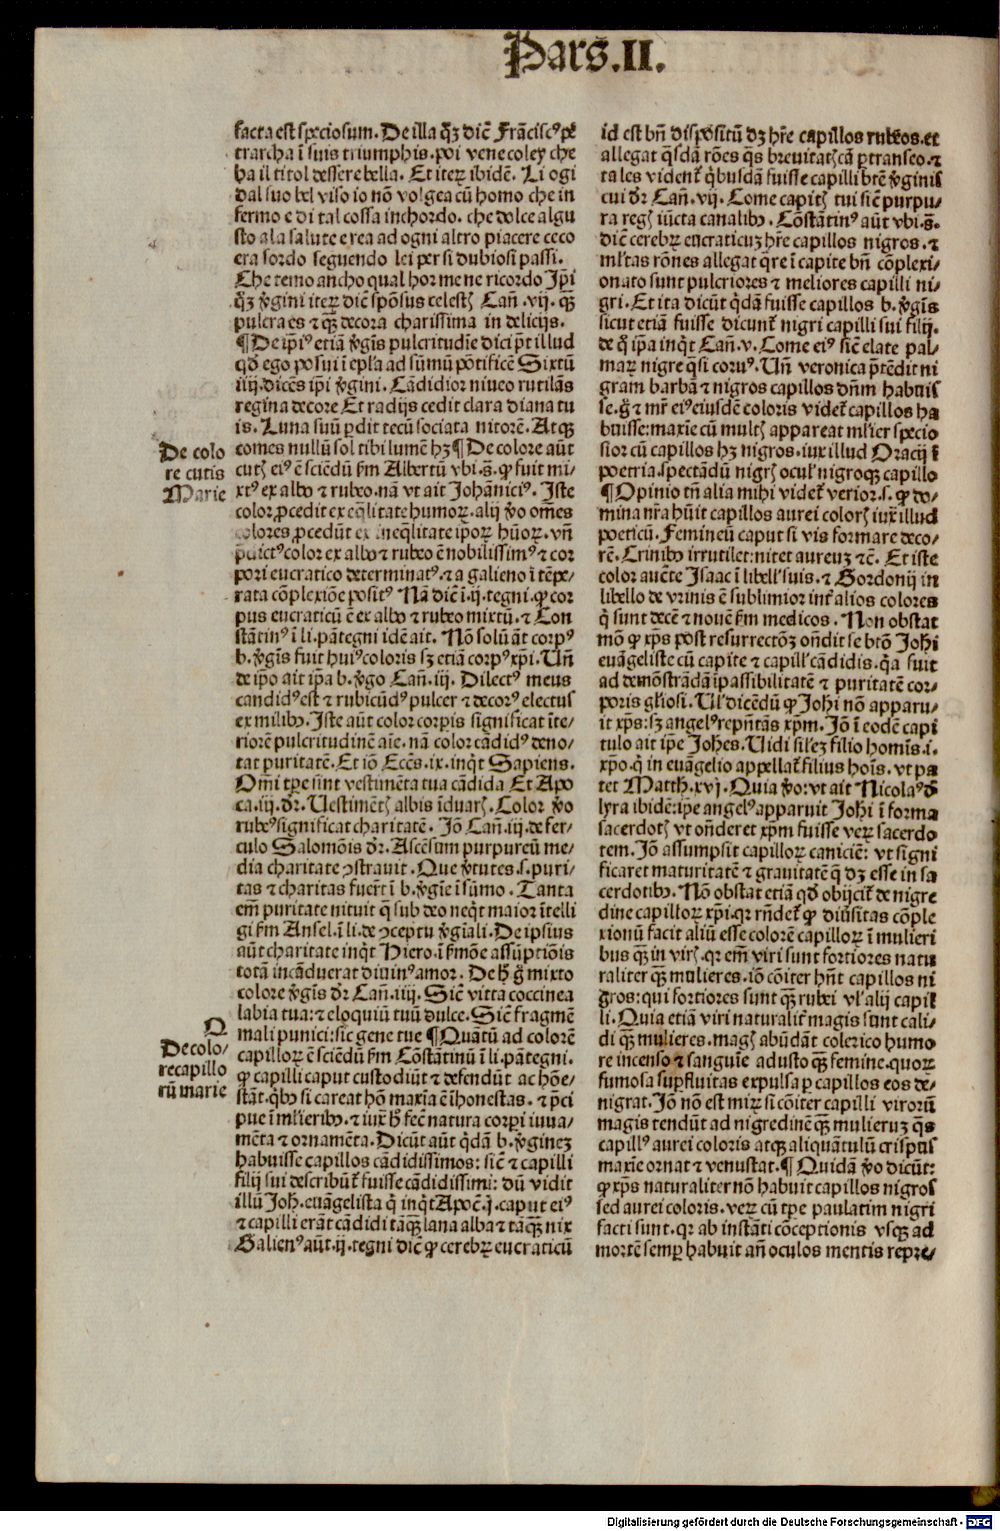 Pars̄.II.
facta est speciosum. De illa q̄ȝ dic̄ Frācisc⁹ pe
trarcha ī suis triumphis. poi vene coley che
ha il titol dessere bella. Et iteꝝ ibidē. Li ogi
dal suo bel viso io nō volgea cū homo che in
fermo e di tal cossa inchordo. che dolce algu
sto a la salute e rea ad ogni altro piacere ceco
era sordo seguendo lei per si dubiosi passi.
Che temo ancho qual hor me ne ricordo Ip̄i
q̄ȝ v̄gini iteꝝ dic̄ spōsus celestꝭ Can̄ .vij. qꝫ
pulcra es ⁊ qꝫ decora charissima in delicijs.
¶De ip̄i⁹ etiā v̄gīs pulcritudīe dici pōt illud
qd̄ ego posui ī epl̄a ad sūmū pōtificē Sixtū
iiij. dicēs ip̄i v̄gini. Cādidior niueo rutilās
regina decore Et radijs cedit clara diana tu
is. Luna suū ꝑdit tecū sociata nitorē. Atqꝫ
comes nullū sol tibi lumē hȝ ¶De colore aūt
cutꝭ ei⁹ ē sciēdū ẜm Albertū vbi.s̄. ꝙ fuit mi-
xt⁹ ex albo ⁊ rubeo. nā vt ait Johānici⁹. Iste
color ꝓcedit ex eq̄litate humoꝝ. alij v̄o om̄es
colores ꝓcedūt ex ineq̄litate ipoꝝ hūoꝝ. vn̄
p̄dict⁹ color ex albo ⁊ rubeo ē nobilissim⁹ ⁊ cor
pori eucratico determinat⁹. ⁊ a galieno ī tēpe-
rata cōplexiōe posit⁹ Nā dic̄ ī .ij. tegni. ꝙ cor
pus eucraticū ē ex albo ⁊ rubeo mixtū. ⁊ Con
stātin⁹ ī li. pātegni idē ait. Nō solū āt corp⁹
b. v̄gīs fuit hui⁹ coloris sȝ etiā corp⁹ xp̄i. Un̄
de ip̄o ait ip̄a b. v̄go Can̄. iij. Dilect⁹ meus
candid⁹ est ⁊ rubicūd⁹ pulcer ⁊ decor⁹ electus
ex milibꝰ. Iste aūt color corpis significat īte-
riorē pulcritudinē aīe. nā color cādid⁹ deno-
tat puritatē. Et iō Eccs̄. ix. inq̇t Sapiens.
Om̄i tp̄e sint vestimēta tua cādida Et Apo
ca. iij. dr̄. Uestimētꝭ albis īduarꝭ. Color v̄o
rube⁹ significat charitatē. Iō Can̄. iij. de fer-
culo Salomōis dr̄. Ascēsum purpureū me-
dia charitate ꝯstrauit. Que v̄tutes. s. puri-
tas ⁊ charitas fuer̄t ī b. v̄gīe ī sūmo. Tanta
em̄ puritate nituit q̄ sub deo neq̇t maior ītelli
gi ẜm Ansel. ī li. de ꝯceptu v̄gīali. De ipsius
aūt charitate inq̇t Hiero. ī ẜmōe assūptiōis
totā incāduerat diuin⁹ amor. De h̄ g̊ mixto
colore v̄gīs dr̄ Can̄. iiij. Sic̄ vitta coccinea
labia tua: ⁊ eloquiū tuū dulce. Sic̄ fragmē
mali punici: sic gene tue ¶Quātū ad colorē
capilloꝝ ē sciēdū ẜm Cōstātinū ī li. pātegni.
ꝙ capilli caput custodiūt ⁊ defendūt ac hōe-
stāt. q̇bꝰ si careat hō maxīa ē īhonestas. ⁊ p̄ci
pue ī ml̄ieribꝰ. ⁊ iux̄ h̄ fec̄ natura corpi iuua-
mēta ⁊ ornamēta. Dicūt aūt q̇dā b. v̄ginez
habuisse capillos cādidissimos: sic̄ ⁊ capilli
filij sui describūt̄ fuisse cādidissimi: dū vidit
illū Joh. euāgelista q̇ inq̇t Apoc̄. j. caput ei⁹
⁊ capilli erāt cādidi tāqꝫ lana alba ⁊ tāqꝫ nix
Galien⁹ aūt. ij. tegni dic̄ ꝙ cerebꝝ eucraticū
De colo
re cutis
Marie
De colo-
re capillo
rū marie
id est bn̄ dispositū dȝ hr̄e capillos rubeos. et
allegat q̄sdā rōes q̄s breuitatꝭ cā ꝑtranseo. ⁊
tales vident̄ q̇busdā fuisse capilli btē v̄ginis
cui dr̄ Can̄. vij. Come capitꝭ tui sic̄ purpu-
ra regꝭ iūcta canalibꝰ. Cōstātin⁹ aūt vbi.s̄.
dic̄ cerebꝝ eucraticuȝ hr̄e capillos nigros. ⁊
ml̄tas rōnes allegat q̄re ī capite bn̄ cōplexi-
onato sunt pulcriores ⁊ meliores capilli ni-
gri. Et ita dicūt q̇dā fuisse capillos b. v̄gīs
sicut etiā fuisse dicunt̄ nigri capilli sui filij.
de q̊ ip̄a inq̇t Can̄. v. Come ei⁹ sic̄ elate pal-
maꝝ nigre q̄si coru⁹. Un̄ veronica p̄tēdit ni
gram barbā ⁊ nigros capillos dn̄m habuis
se. g̊ ⁊ mr̄ ei⁹ eiusdē coloris videt̄ capillos ha
buisse: maxīe cū multꝭ appareat ml̄ier specio
sior cū capillos hȝ nigros. iux illud Oracij ī
poetria. spectādū nigrꝭ ocul' nigroqꝫ capillo
¶Opinio tn̄ alia mihi videt̄ verior. s. ꝙ do-
mina nr̄a hūit capillos aurei colorꝭ iux̄ illud
poeticū. Femineū caput si vis formare deco-
rē. Crinibꝰ irrutilet: nitet aureuȝ ⁊c̄. Et iste
color auctē Isaac ī libell' suis. ⁊ Gordonij in
libello de vrinis ē sublimior int̄ alios colores
q̇ sunt decē ⁊ nouē ẜm medicos. Non obstat
mō ꝙ xp̄s post resurrectōȝ on̄dit se btō Johi
euāgeliste cū capite ⁊ capill' cādidis. q̄a fuit
ad demōstrādā īpassibilitatē ⁊ puritatē cor-
poris gl̄iosi. Ul' dicēdū ꝙ Johi nō apparu-
it xp̄s: sȝ angel⁹ rep̄ntās xp̄m. Iō ī eodē capi
tulo ait ip̄e Johēs. Uidi sil̄eȝ filio homīs. i.
xp̄o. q̇ in euāgelio appellat̄ filius hoīs. vt pa
tet Matth. xvj. Quia v̄o: vt ait Nicola⁹ d̄
lyra ibidē: ip̄e angel⁹ apparuit Johi ī forma
sacerdotꝭ vt on̄deret xp̄m fuisse veꝝ sacerdo
tem. Iō assumpsit capilloꝝ caniciē: vt signi
ficaret maturitatē ⁊ grauitatē q̄ dȝ esse in sa
cerdotibꝰ. Nō obstat etiā qd̄ obijcit̄ de nigre
dine capilloꝝ xp̄i. qr rn̄det̄ ꝙ diūsitas cōple
xionū facit aliū esse colorē capilloꝝ ī mulieri
bus qꝫ in virꝭ. qr em̄ viri sunt fortiores natu
raliter qꝫ mulieres. iō cōiter hn̄t capillos ni
gros: qui fortiores sunt qꝫ rubei vl' alij capil
li. Quia etiā viri naturalit̄ magis sunt cali-
di qꝫ mulieres. magꝭ abūdāt colerico humo
re incenso ⁊ sanguīe adusto qꝫ femine. quoꝝ
fumosa suꝑfluitas expulsa ꝑ capillos eos de-
nigrat. Iō nō est miꝝ si cōiter capilli viroꝝ
magis tendūt ad nigredinē qꝫ mulieruȝ q̄s
capill⁹ aurei coloris atqꝫ aliquātulū crispus
maxīe ornat ⁊ venustat. ¶Quidā v̄o dicūt:
ꝙ xp̄s naturaliter nō habuit capillos nigros
sed aurei coloris. veꝝ cū tp̄e paulatim nigri
facti sunt. qr ab instāti cōceptionis vsqꝫ ad
mortē semꝑ habuit an̄ oculos mentis repre-
Digitalisierung gefördert durch die Deutsche Forschungsgemeinschaft - DFG